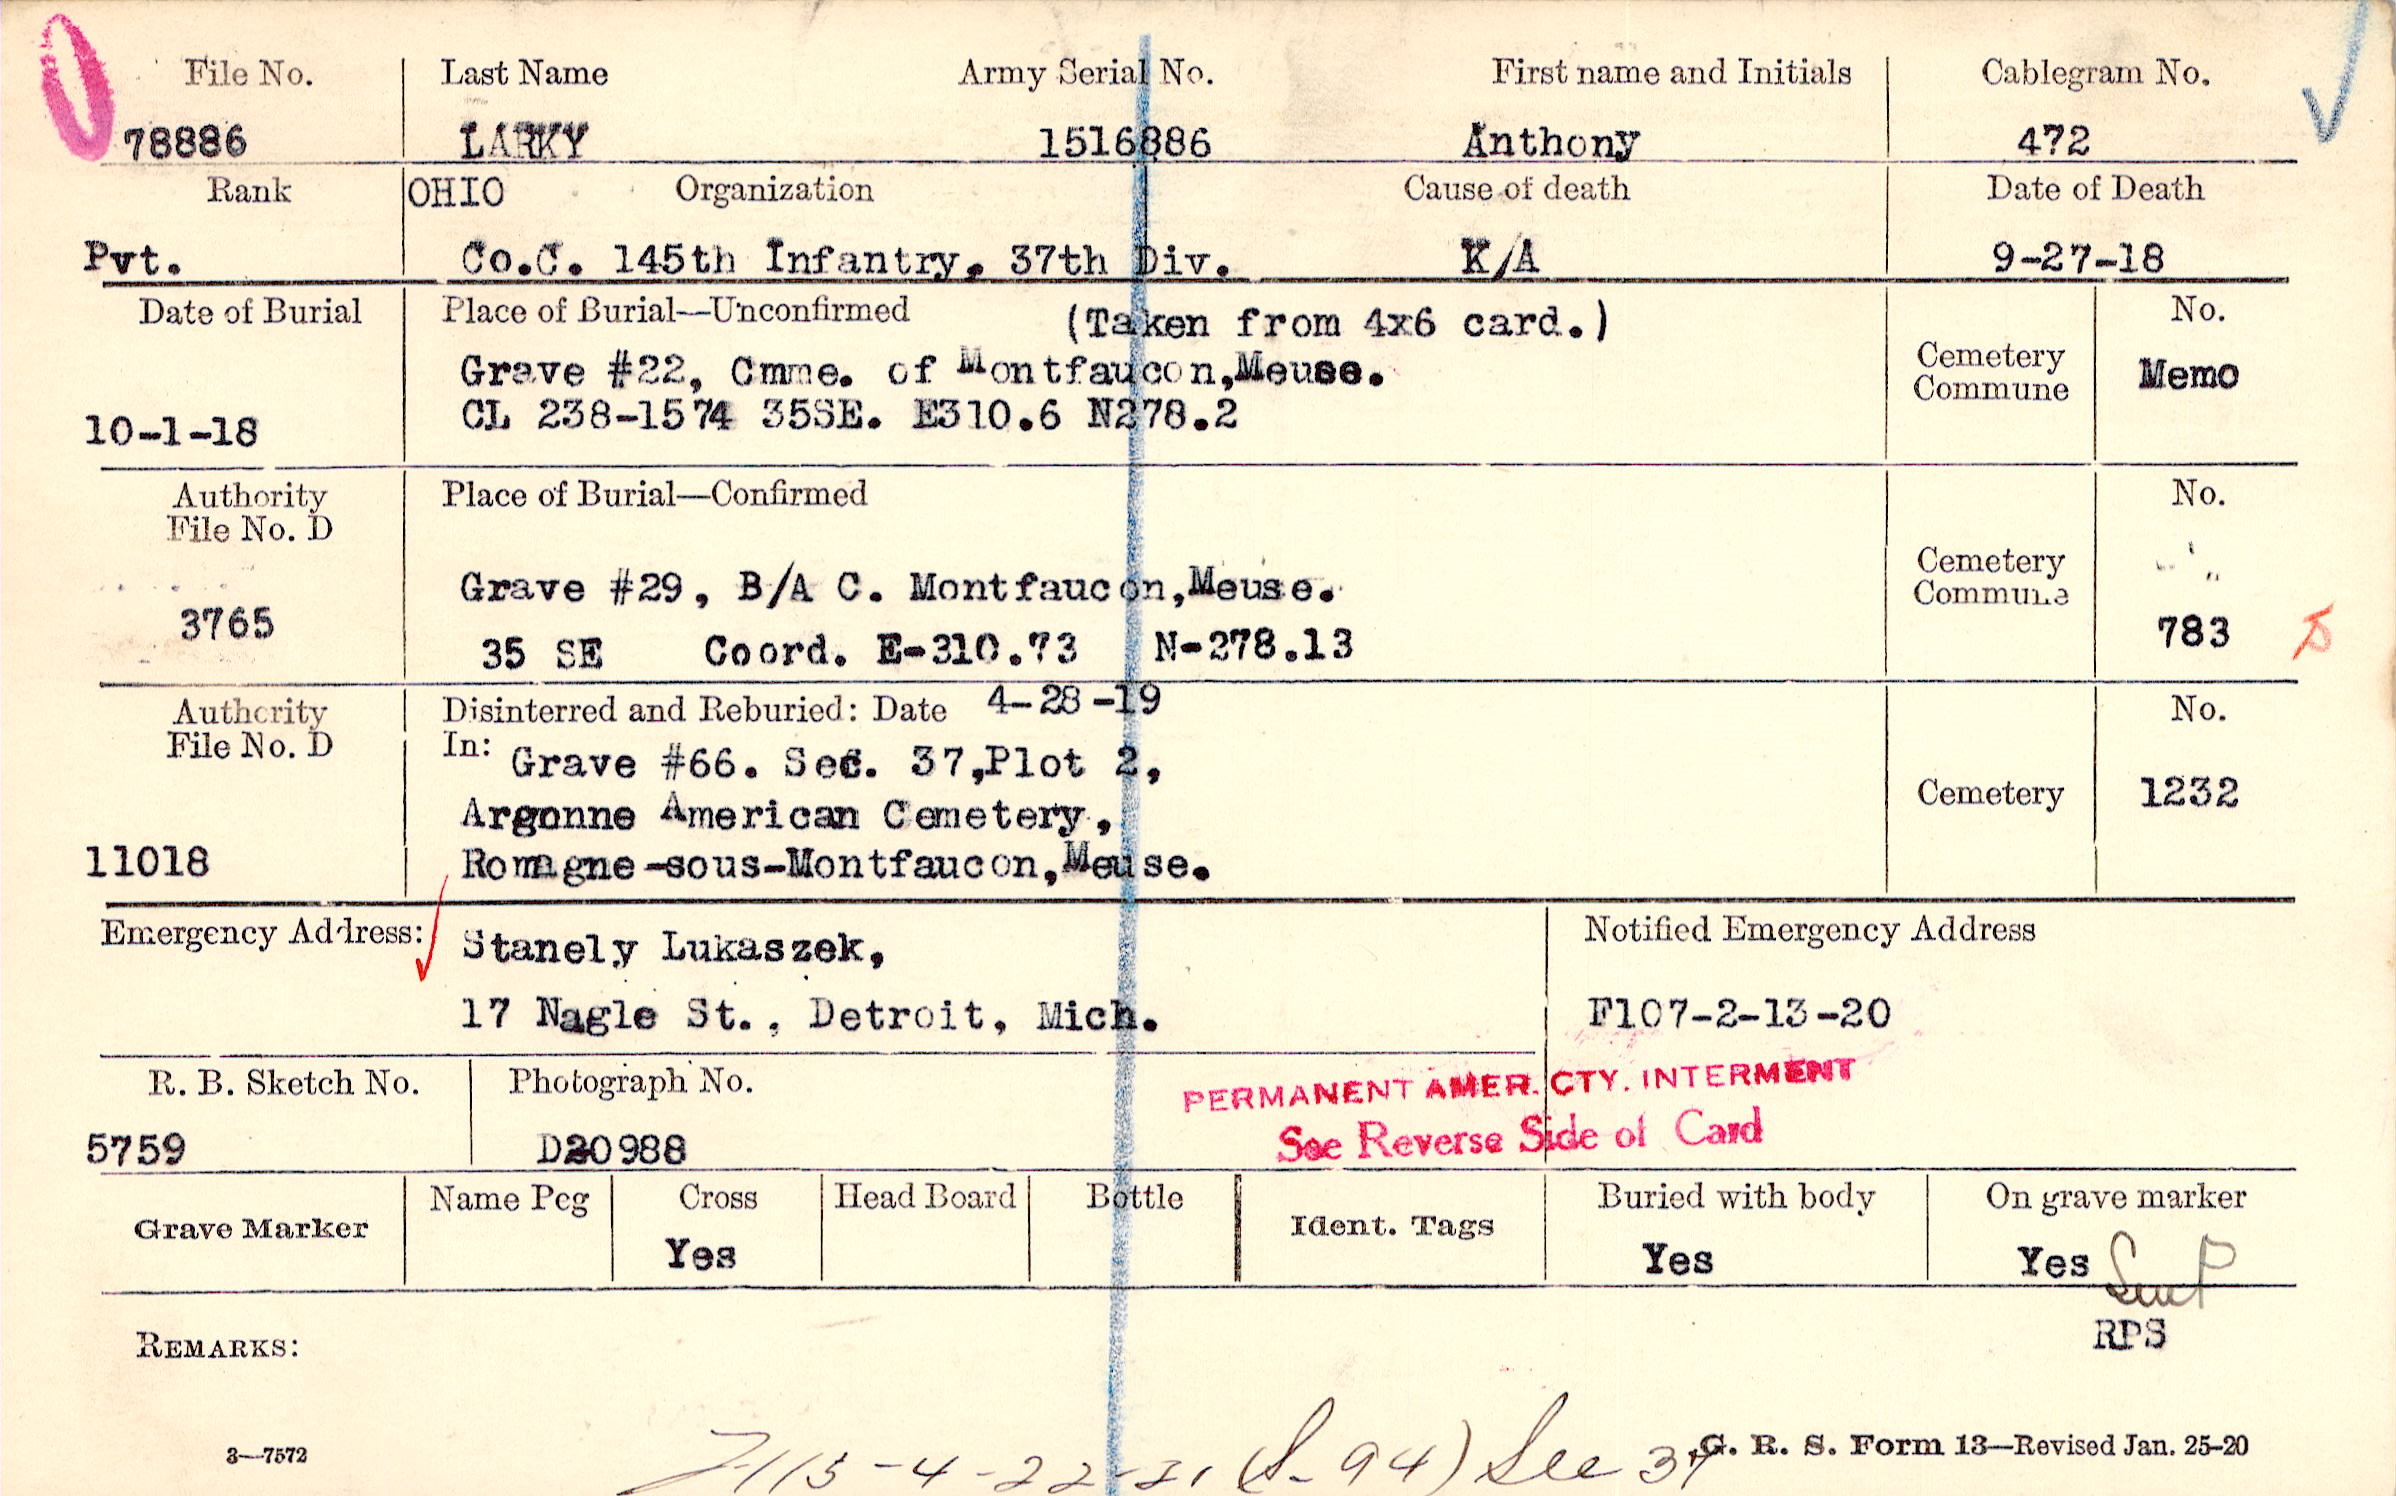 File No. Last Name Army Serial No. First name and Initials Cablegram No.
78886 LARKY 1516886 Anthony 472
Rank OHIO Organization Cause of death Date of Death
Pvt. Co.C. 145th Infantry, 37th Div. K/A 9-27-18
Date of Burial Place of Burial—Unconfirmed (Taken from 4x6 card.) No.
Grave #22, Cmme. of Montfaucon,Meuse. Cemetery Commune Memo
10-1-18 CL 238-1574 35SE. E310.6 N278.2
Authority Place of Burial—Confirmed No.
File No. D
Grave #29, B/A C. Montfaucon,Meuse. Cemetery Commune
3765 35 SE Coord. E-310.73 N-278.13 783
Authority Disinterred and Reburied: Date 4-28-19 No.
File No. D In: Grave #66. Sec. 37,Plot 2,
Argonne American Cemetery, Cemetery 1232
11018 Romagne-sous-Montfaucon,Meuse.
Emergency Address: Stanely Lukaszek, Notified Emergency Address
17 Nagle St., Detroit, Mich. F107-2-13-20
R. B. Sketch No. Photograph No. PERMANENT AMER. CTY. INTERMENT
5759 D20988 See Reverse Side of Card
Grave Marker Name Peg Cross Head Board Bottle Ident. Tags Buried with body On grave marker
Yes Yes Yes
RPS
REMARKS:
3—7572 (S-94) See 37 G. R. S. Form 13—Revised Jan. 25-20